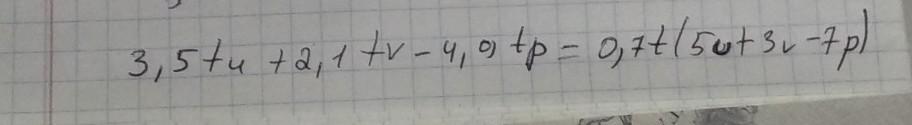 3,5tu + 2,1tv - 4,9tp = 0,7t(5u + 3v - 7p)